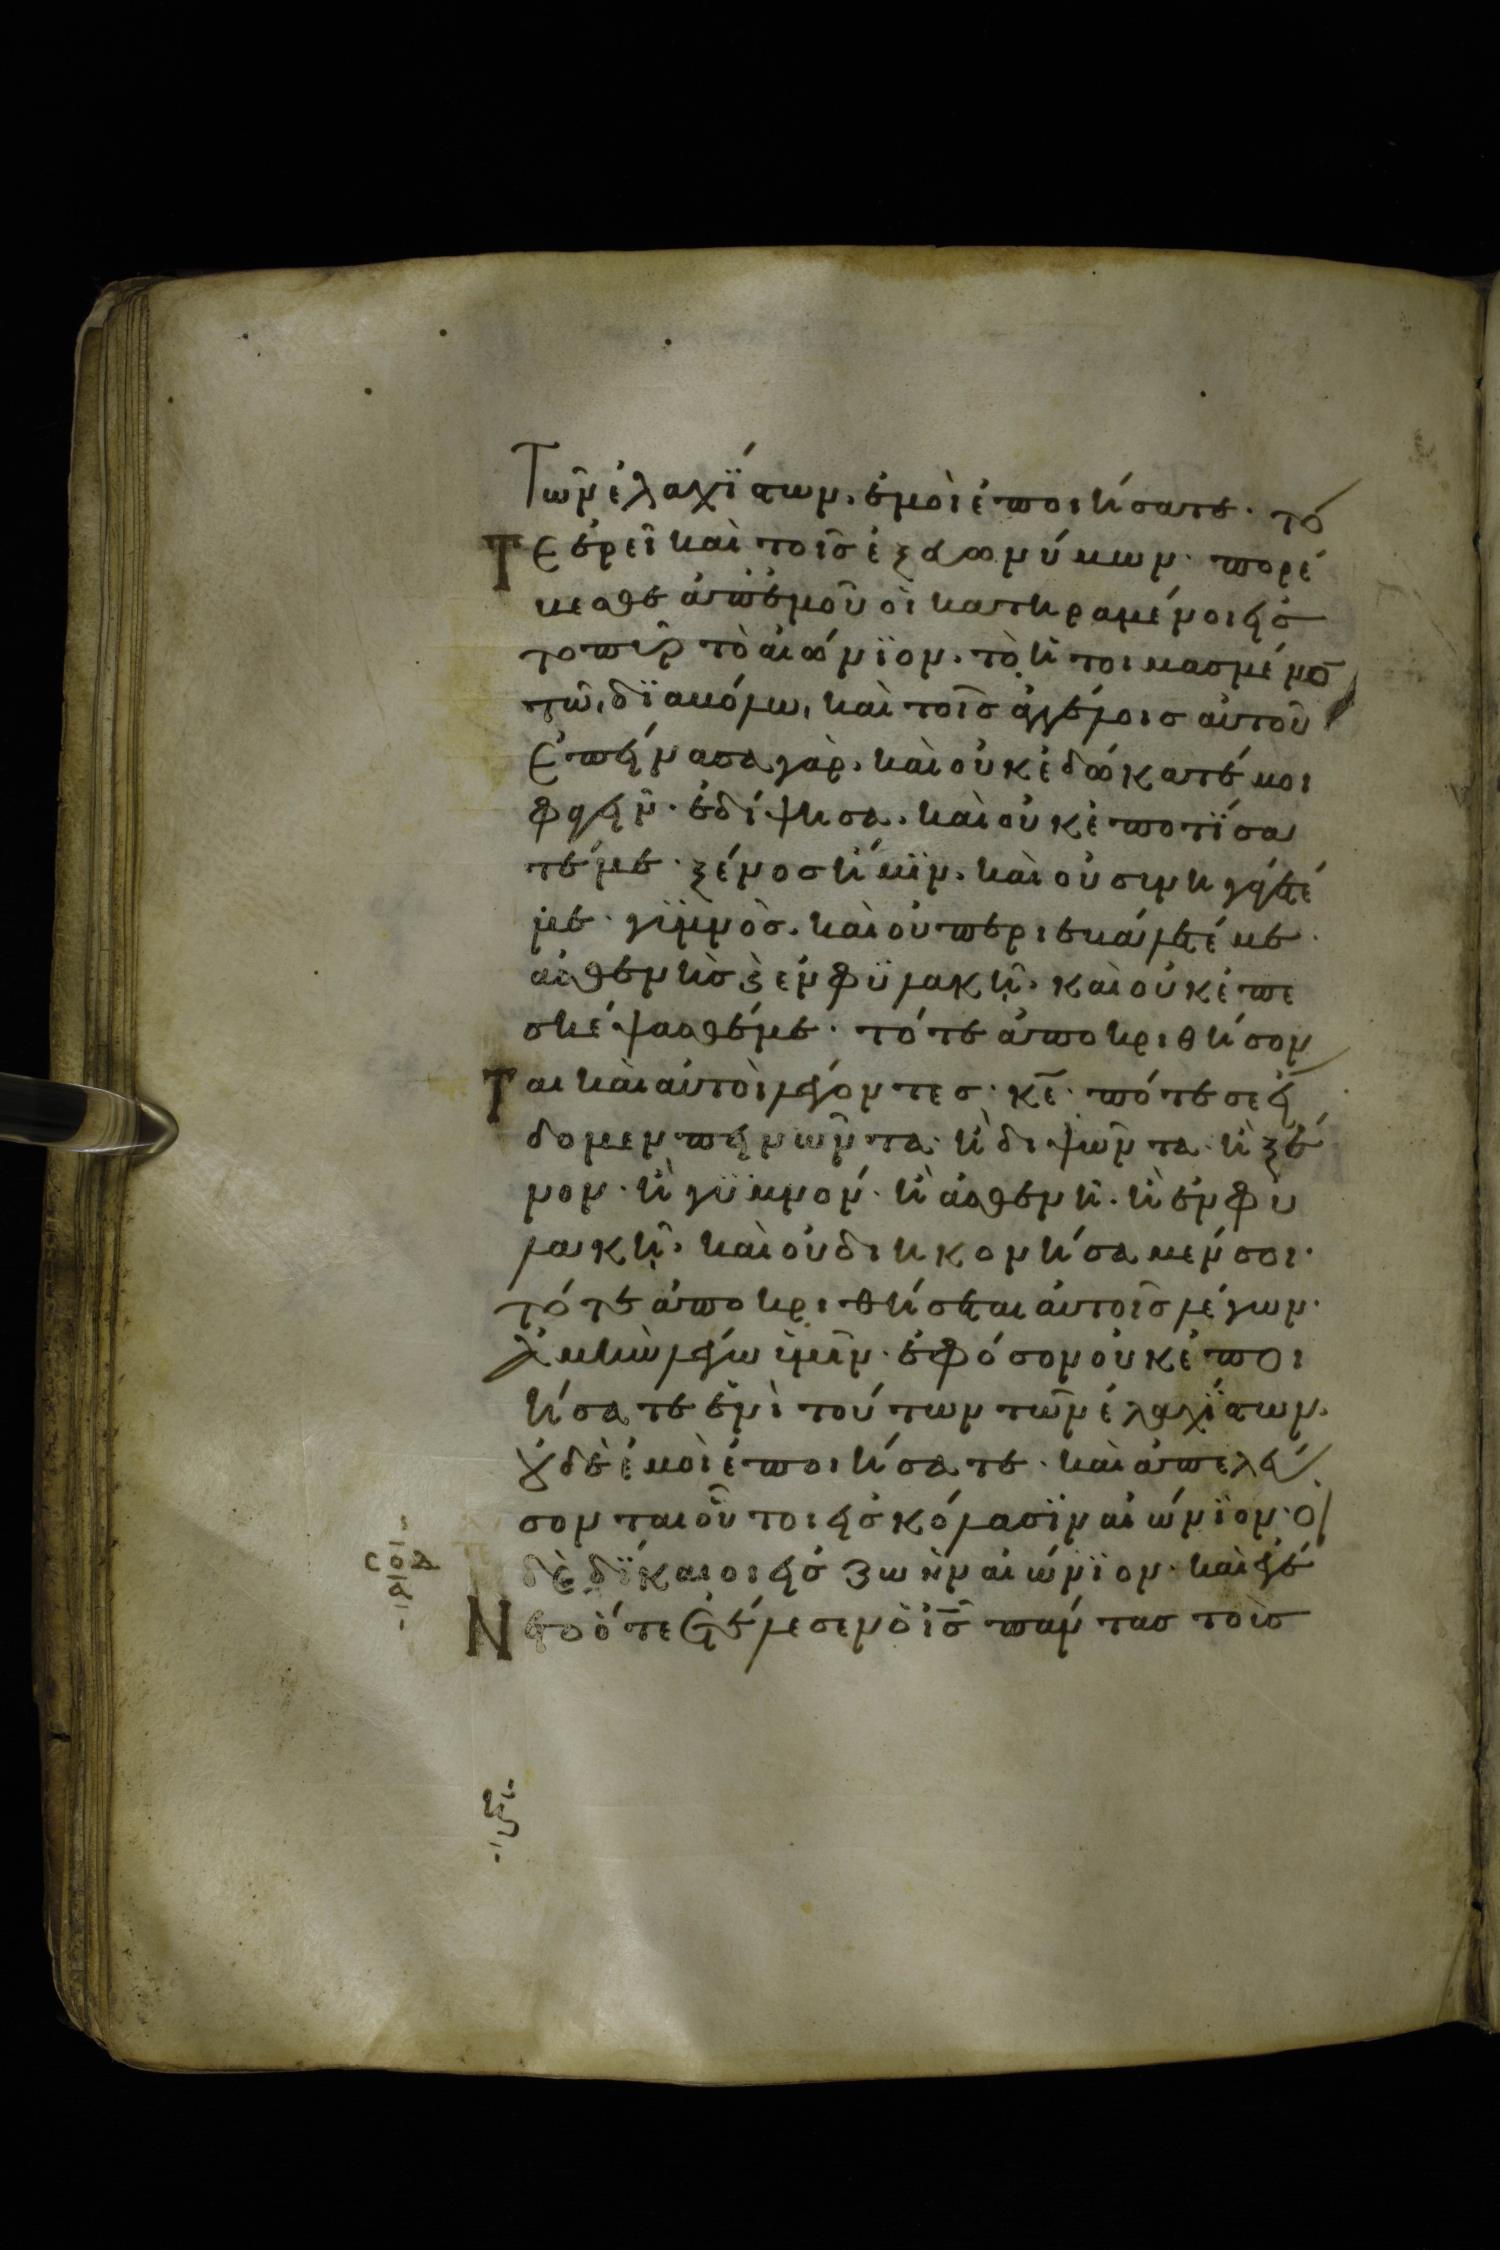 Τῶν ἐλαχΐστων. ἐμοὶ ἐποιήσατε· τό
τε ἐρεῖ καὶ τοῖς ἐξ εὐωνύμων· πορεύ
εσθε ἀπ' ἐμοῦ οἱ κατηραμένοι εἰς
το πῦρ τὸ αἰώνϊον. τὸ ἡτοιμασμένον
τῶ, δϊαβόλω, καὶ τοῖς ἀγγέλοις αὐτοῦ
Ἐπείνασα γὰρ. καὶ οὐκ ἐδώκατέ μοι
φαγεῖν· ἐδίψησα. καὶ οὐκ ἐποτΐσα
τέ με· ξένος ἤμϊν. καὶ οὐ συνηγάγετέ
με· γϋμνὸς. καὶ οὐ περιεβάλετέ με·
ἀσθενὴς καὶ ἐν φϋλακῆ. καὶ οὐκ ἐπε
σκέψασθέ με· τότε ἀποκριθήσον
ται καὶ αὐτοὶ λέγοντες· κε· πότε σε εἴ
δομεν πεινῶντα· ἢ διψῶντα· ἢ ξέ
νον· ἢ γϋμνόν· ἢ ἀσθενῆ· ἢ ἐν φϋ
λακῆ. καὶ οὐ διηκονήσαμέν σοι·
τότε ἀποκριθήσεται αὐτοῖς λέγων·
Ἀμὴν λέγω ὑμῖν· ἐφ' ὅσον οὐκ ἐποι
ήσατε ἑνὶ τούτων τῶν ἐλαχΐστων.
οὐδὲ ἐμοὶ ἐποιήσατε· καὶ ἀπελεύ
σονται οὗτοι εἰς κόλασϊν αἰώνϊον· οἱ
δὲ δΐκαιοι εἰς ζωὴν αἰώνϊον· καὶ ἐγέ
Νετο ὅτε ἐτέλεσεν ὁ ις πάντας τοὺς
σοδ